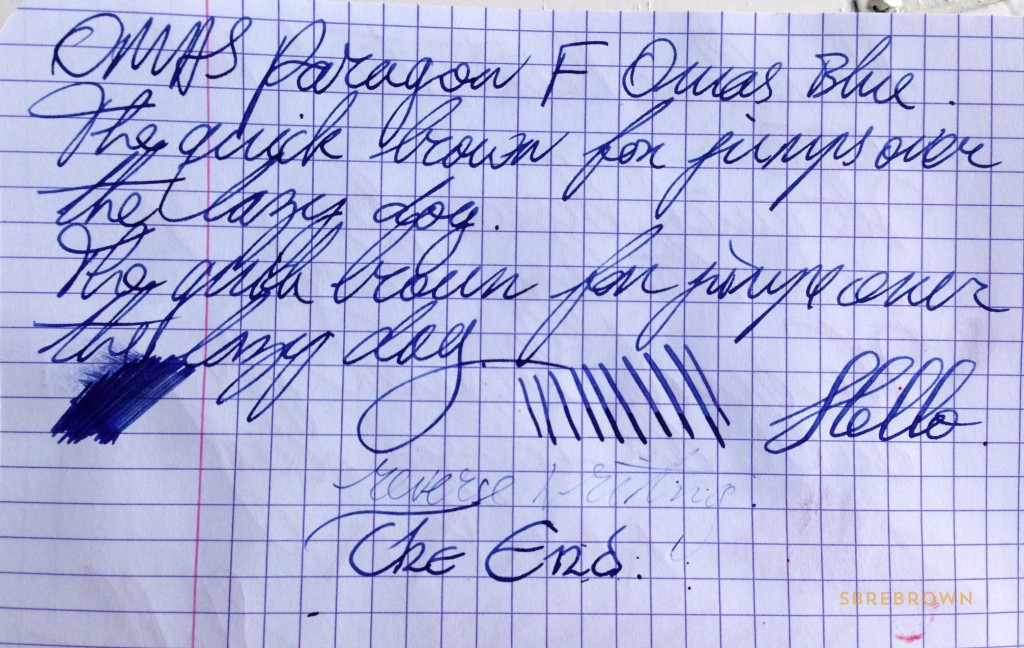 OMAS Paragon F Omas Blue.
The quick brown fox jumps over
the lazy dog.
The quick brown fox jumps over
the lazy dog.
Hello.
reverse writing.
The End.
SBREBROWN